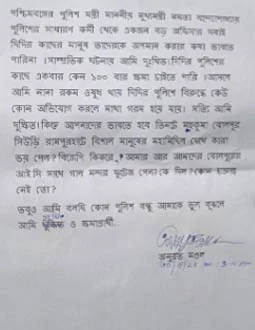 পশ্চিমবঙ্গের পুলিশ মন্ত্রী মাননীয় মুখ্যমন্ত্রী মমতা বন্দ্যোপাধ্যায়
পুলিশের সাধারণ কর্মী থেকে একজন বড় অফিসার সবাই
দিদির কাছের মানুষ তাদেরকে অপমান করার কথা ভাবতে
পারিনা । সাম্প্রতিক ঘটনায় আমি দুঃখিত। দিদির পুলিশের
কাছে একবার কেন ১০০ বার ক্ষমা চাইতে পারি । আসলে
আমি নানা রকম ওষুধ খাই দিদির পুলিশে বিরুদ্ধে কেউ
কোন অভিযোগ করলে মাথা গরম হয়ে যায়। সত্যি আমি
দুঃখিত। কিন্তু আপনাদের ভাবতে হবে তিনটি মহকুমা বোলপুর
সিউড়ি রামপুরহাটে বিশাল মানুষের মহামিছিল দেখে কারা
ভয় পেল ? বিজেপি কিকরে, আমার আর আমাদের বোলপুরের
আই সি সাথে গাল মন্দর ফুটেজ পেল? কে দিল ? কোন চক্রান্ত
নেই তো ?
তবুও আমি বলছি কোন পুলিশ বন্ধু আমাকে ভুল বুঝলে
আমি দুঃখিত ও ক্ষমাপ্রার্থী.
অনুব্রত মণ্ডল